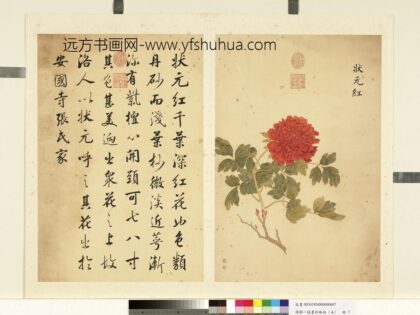 远方书画网-www.yfshuhua.com
狀元紅
狀元紅千葉深紅花也色類
丹砂而淺葉杪微淡近萼漸
深有紫檀心開頭可七八寸
其色甚美迥出衆花之上故
洛人以狀元呼之其花出於
安國寺張氏家